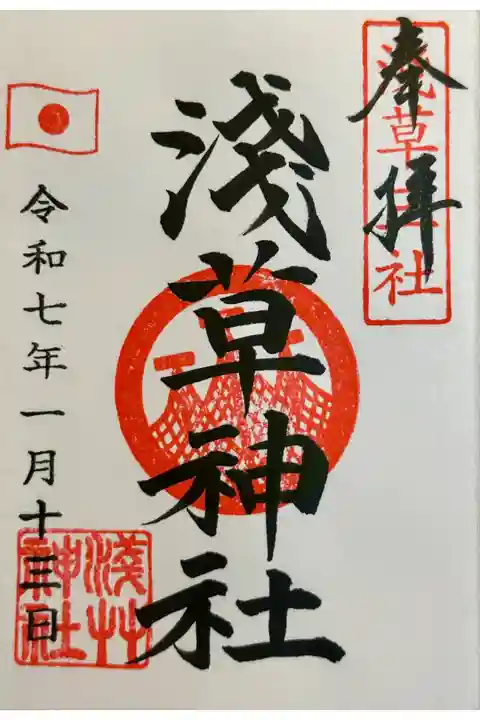 奉拝
浅草三社
淺草神社
令和七年一月十三日
淺草神社